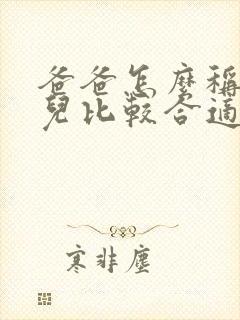 爸爸怎麼稱
兒比較合適
寒非塵